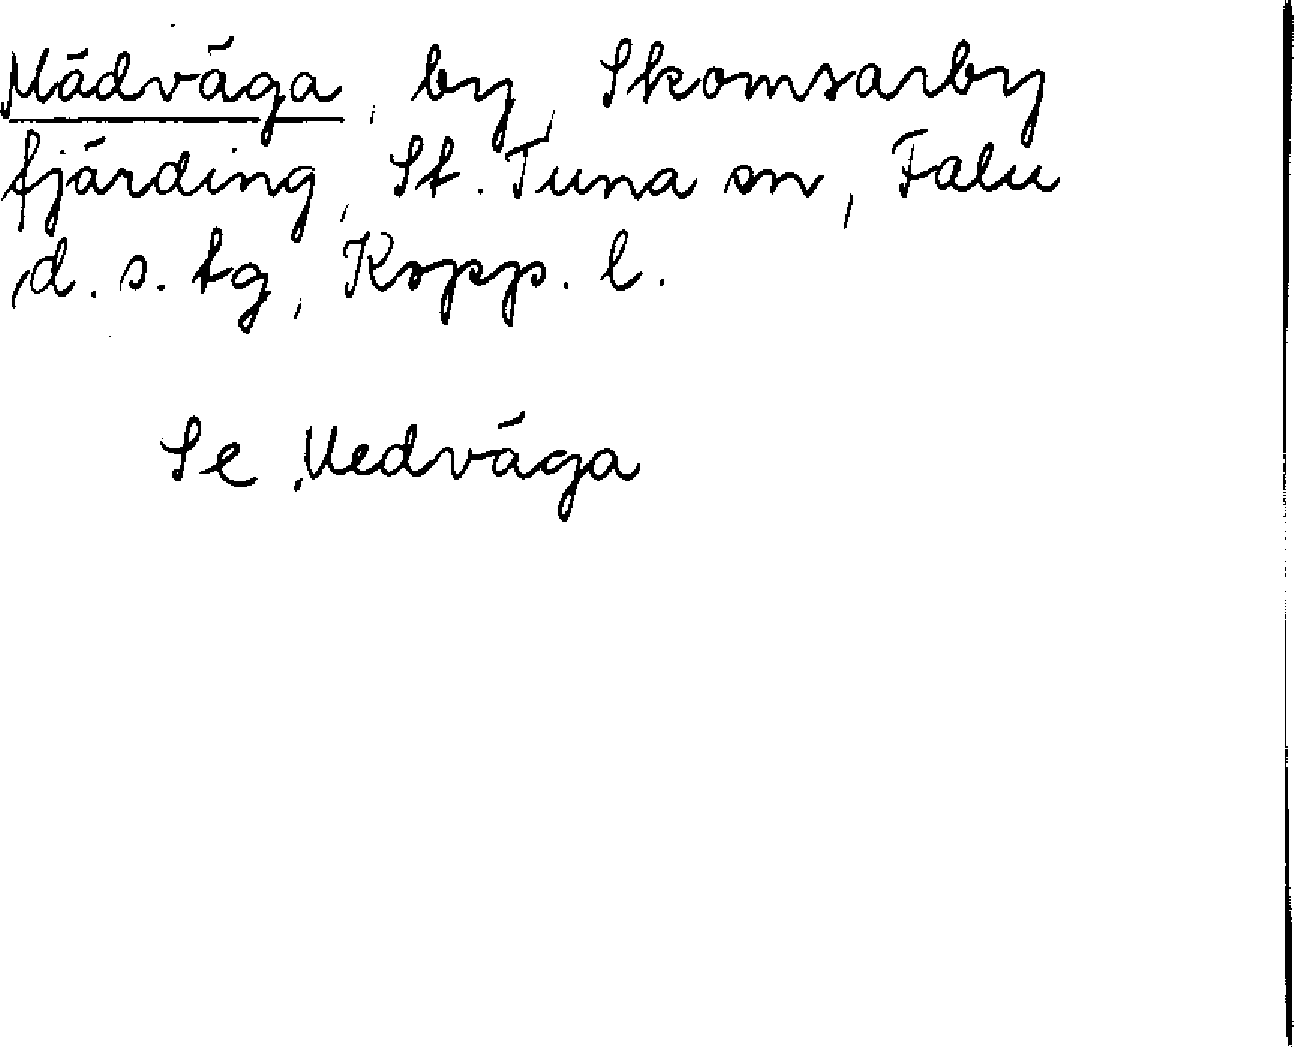 Mädväga, by, Skomsarby
fjärding, St. Tuna sn, Falu
d. s. tg, Kopp. l.
Se Medväga